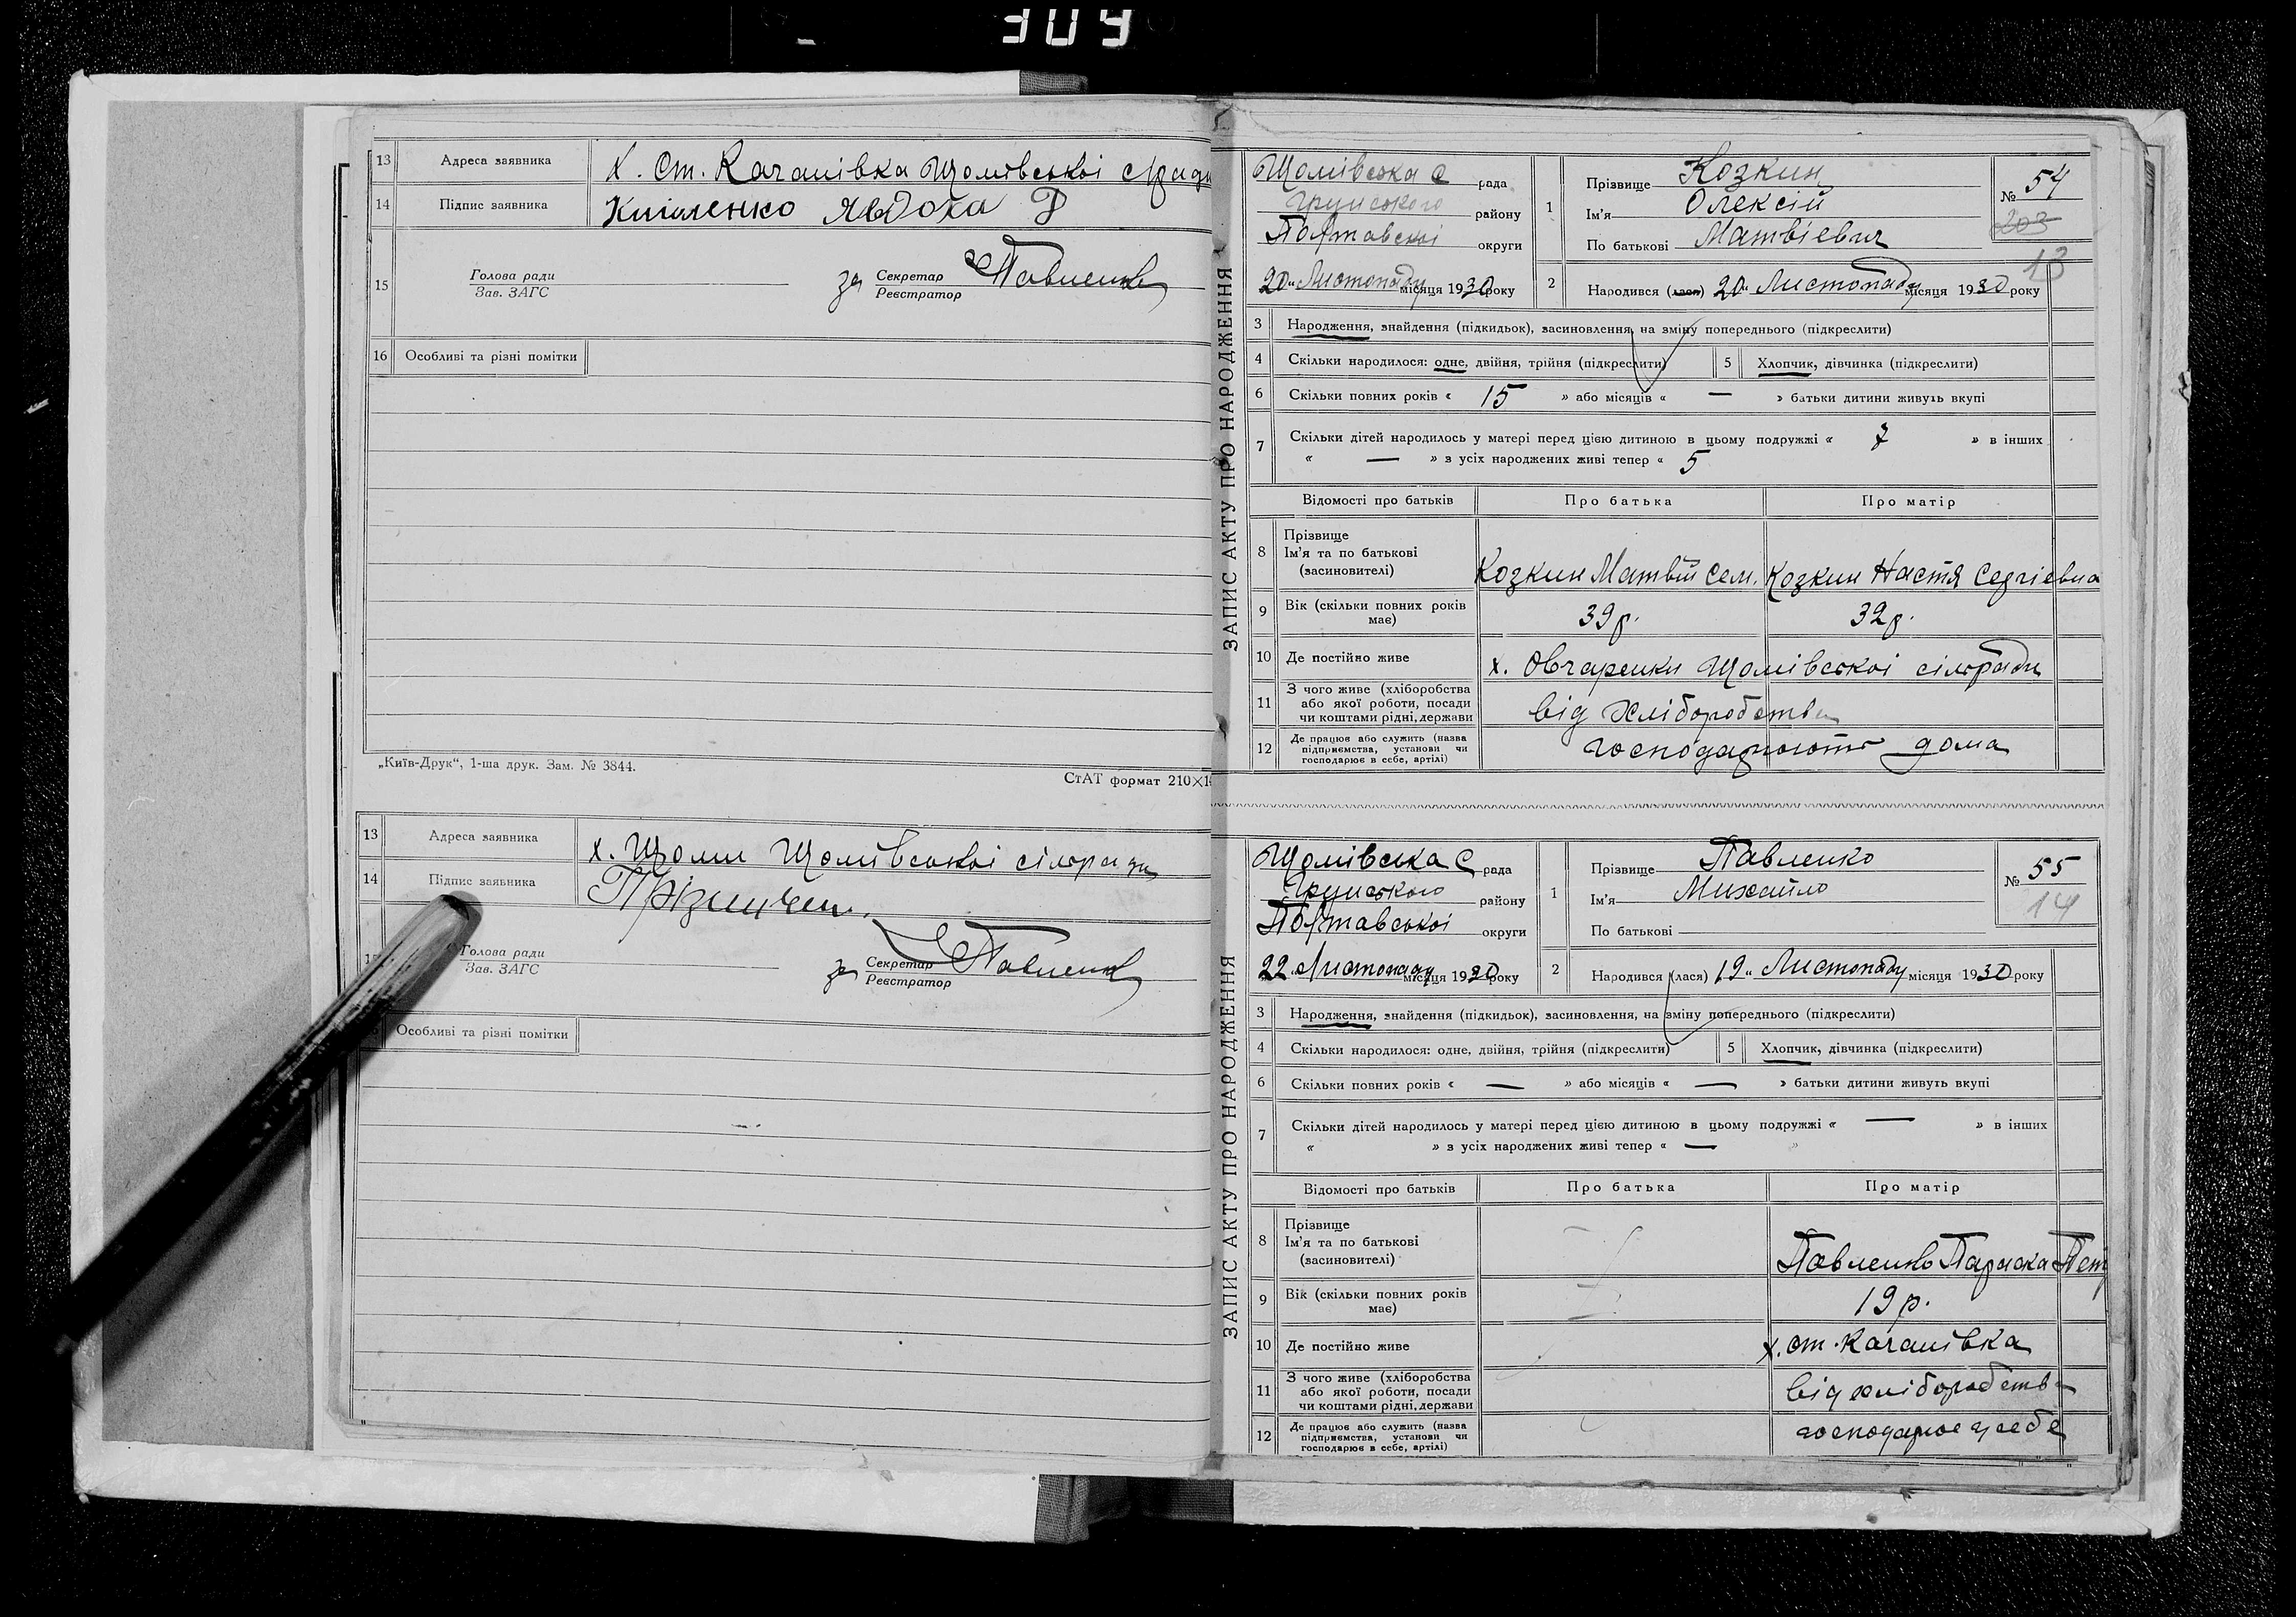 309
13 Адреса заявника х. Ст. Качанівка Щомівської с/ради
14 Підпис заявника Явдоха
15 Голова ради
Зав. ЗАГС
за Секретар
Реєстратор Павленко
16 Особливі та різні помітки
„Київ-Друк“, 1-ша друк. Зам. № 3844.
СтАТ формат 210×1
13 Адреса заявника х. Щоми Щомівської сільради
14 Підпис заявника
Голова ради
Зав. ЗАГС
за Секретар
Реєстратор Павленко
Особливі та різні помітки
ЗАПИС АКТУ ПРО НАРОДЖЕННЯ
Щомівська С рада
Грунського району
Полтавської округи
20 „ Листопаду місяця 1930 року
1 Прізвище Козкин
Ім'я Олексій
По батькові Матвієвич
№ 54
203
13
2 Народився (лася) 20 „ Листопаду місяця 1930 року
3 Народження, знайдення (підкидьок), засиновлення, на зміну попереднього (підкреслити)
4 Скільки народилося: одне, двійня, трійня (підкреслити) 5 Хлопчик, дівчинка (підкреслити)
6 Скільки повних років « 15 » або місяців « — » батьки дитини живуть вкупі
7 Скільки дітей народилось у матері перед цією дитиною в цьому подружжі « 7 » в інших
« — » з усіх народжених живі тепер « 5
Відомості про батьків Про батька Про матір
8 Прізвище
Ім'я та по батькові
(засиновителі)
Козкин Матвій Сем. Козкин Настя Сергієвна
9 Вік (скільки повних років
має)
39 р. 32 р.
10 Де постійно живе х. Овчаренки Щомівської сільради
11 З чого живе (хліборобства
або якої роботи, посади
чи коштами рідні, держави
від хліборобства
12 Де працює або служить (назва
підприємства, установи чи
господарює в себе, артілі)
господарюють дома
ЗАПИС АКТУ ПРО НАРОДЖЕННЯ
Щомівська С рада
Грунського району
Полтавської округи
22 „ Листопаду місяця 1930 року
1 Прізвище Павленко
Ім'я Михайло
По батькові
№ 55
14
2 Народився (лася) 19 „ Листопаду місяця 1930 року
3 Народження, знайдення (підкидьок), засиновлення, на зміну попереднього (підкреслити)
4 Скільки народилося: одне, двійня, трійня (підкреслити) 5 Хлопчик, дівчинка (підкреслити)
6 Скільки повних років « — » або місяців « — » батьки дитини живуть вкупі
7 Скільки дітей народилось у матері перед цією дитиною в цьому подружжі « — » в інших
« » з усіх народжених живі тепер « — »
Відомості про батьків Про батька Про матір
8 Прізвище
Ім'я та по батькові
(засиновителі)
Павленко Параска Пет
9 Вік (скільки повних років
має)
19 р.
10 Де постійно живе х. ст. Качанівка
11 З чого живе (хліборобства
або якої роботи, посади
чи коштами рідні, держави
від хліборобства
12 Де працює або служить (назва
підприємства, установи чи
господарює в себе, артілі)
господарює у себе